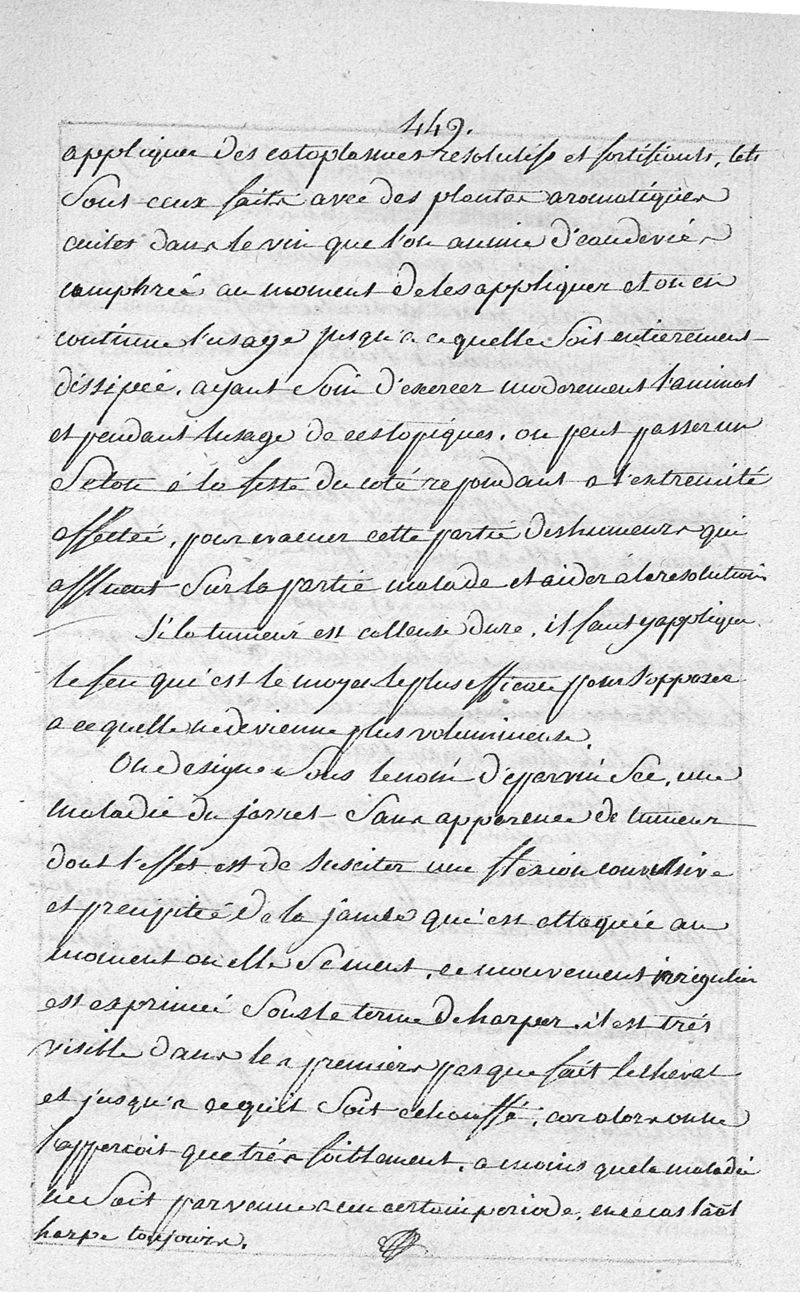 449.
appliquer des cataplasmes resolutifs et fortifiants, tels
Sont ceux faits avec des plantes aromatiques
cuites dans le vin que l'on anime d'eau de vie
camphrée au moment de les appliquer et on en
continue l'usage jusqu'a ce quelle Soit entièrement
dissipée, ayant Soin d'exercer moderement l'animal
et pendant lusage de ces topiques, on peut passer un
Seton à la fesse du coté repondant a l'extremité
affectée, pour evacuer cette partie des humeurs qui
affluent Sur la partie malade et aider à la resolution
Si la tumeur est calleuse dure, il faut y appliquer
le feu qui est le moyen le plus efficace pour S'opposer
a ce quelle ne devienne plus volumineuse.
On designe Sous le nom d'eparvin Sec, une
maladie du jarret Sans apparence de tumeur
dont l'effet est de Susciter une flexion convulsive
et precipitée de la jambe qui est attaquée au
moment ou elle Se meut, ce mouvement irregulier
est exprimé Sous le terme de harper, il est trés
visible dans les premiers pas que fait le cheval
et jusqu'a ce quil Soit echauffé, car alors on ne
l'apperçoit que trés foiblement, a moins que la maladie
ne Soit parvenue a un certain periode, en ce cas
harpe toujours.